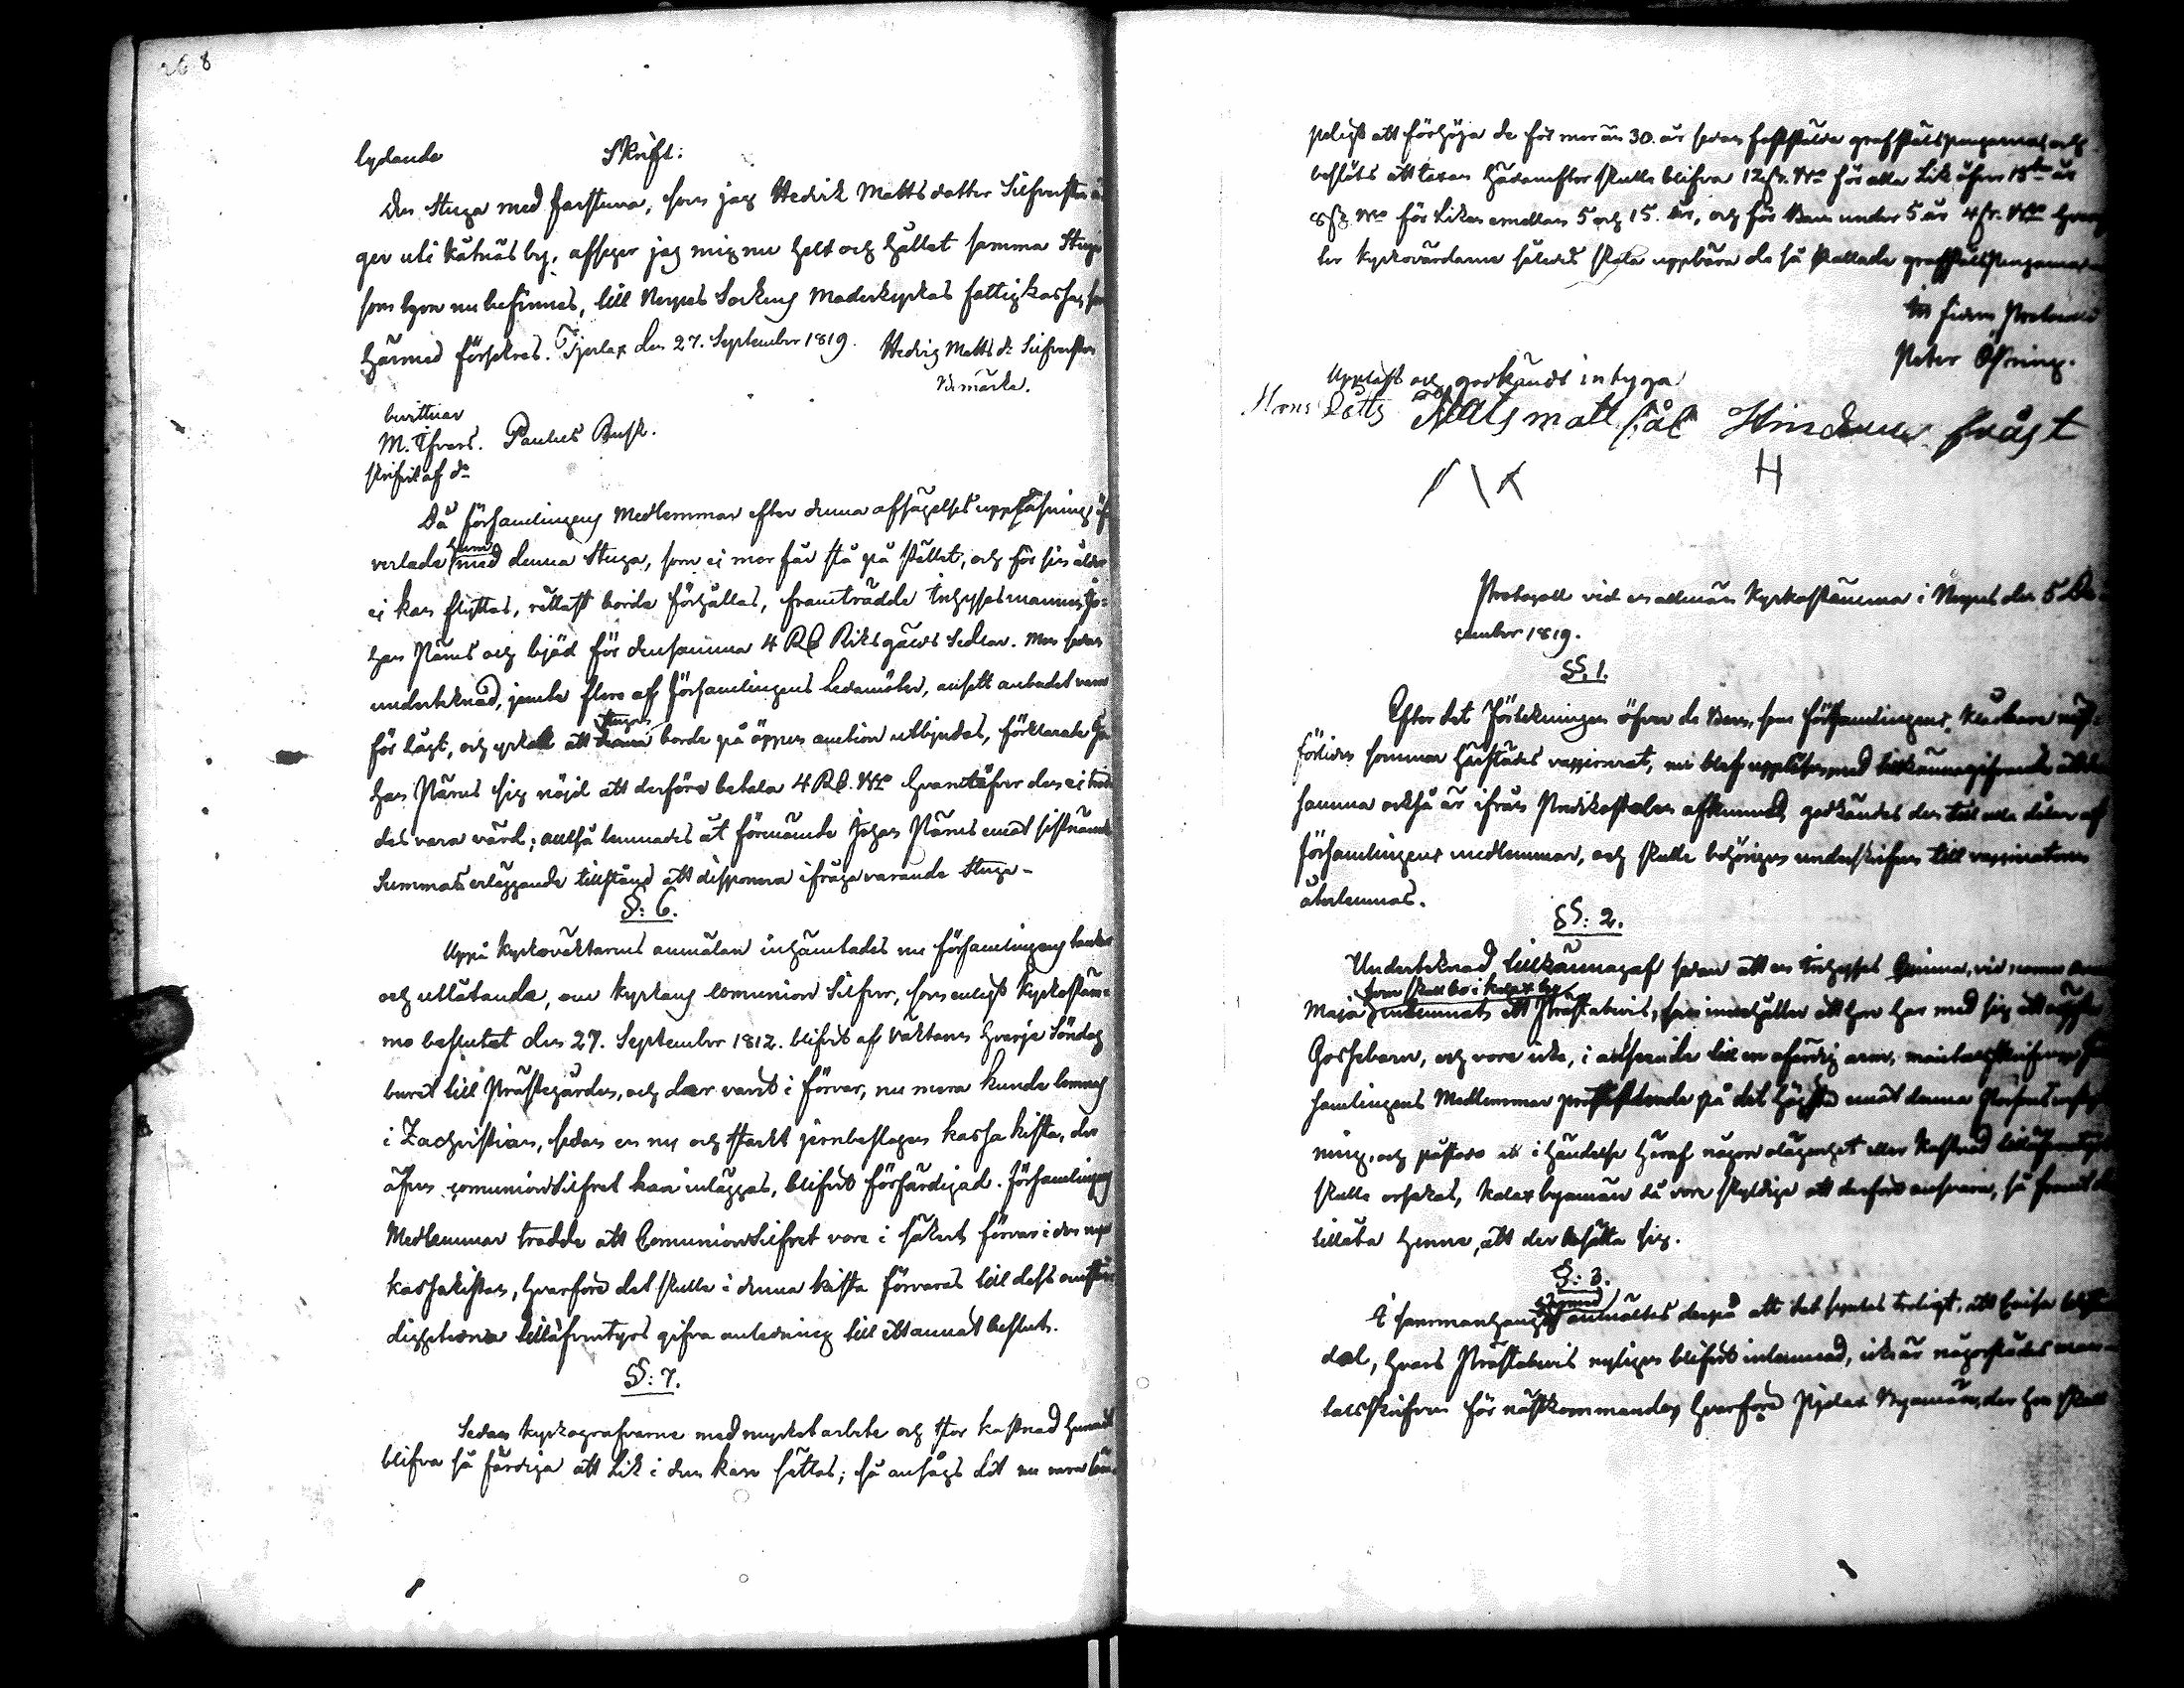 268
lydande Skrift:
Den Stuga med farstuva, som jag Hedvik Mattsdotter Silfversten ä-
ger uti Kåtnäs by, afsäger jag mig nu helt och hållet samma Stuga
som hon nu befinnes, till Nerpes Sockens Moderkyrkas fattigkassa, som
härmed försäkras. Tjerlax den 27. September 1819. Hedvig Matts dr Silfversten
Bomärke.
bevittnar
M. Ifvars. Paulus Rusk.
skrifvit af dn
Då församlingens Medlemmar efter denna afsägelses uppläsning öf-
verlade huru med denna Stuga, som ej mer får stå på stället, och för sin ålder
ej kan flyttas, rättast borde förhållas, framträdde Inhyssesmannen Jo-
han Pärus och bjöd för densamma 4 Rd Riksgälds Sedlar. Men sedan
undertecknad, jemte flere af församlingens Ledamöter, ansett anbudet vara
för lågt, och yrkat att stugan borde på öppen auction utbjudas, förklarade Jo-
han Pärus sig nöjd att derföre betala 4 Rd. Bco hvarutöfver den ej tros-
des vara värd; alltså lemnades åt förenämnde Johan Pärus emot sistnämnde
Summas erläggande tillstånd att disponera ifrågavarande Stuga.
§: 6.
Uppå Kyrkoväktarens anmälan inhämtades nu församlingens tankar
och utlåtande, om Kyrkans Comunion Silfver, som enligt Kyrkostäm-
mo beslutet den 27. September 1812. blifvit af Väktaren hvarje Söndag
buret till Prästegården, och der varit i förvar, nu mera kunde lemnas
i Zachristian, sedan en ny och starkt jernbeslagen kassa kista, der
äfven comunionSilfret kan inläggas, blifvit förfärdigad. Församlingens
Medlemmar trodde att ComunionSilfret vore i säkert förvar i den nya
kassakistan, hvarföre det skulle i denna kista förvaras till dess omstän-
digheterna tilläfventyrs gifva anledning till ett annat beslut.
§: 7.
Sedan Kyrkografvarne med mycket arbete och stor kostnad hunnit
blifva så färdiga att Lik i dem kan sättas; så ansågs det nu vara bil-
ligt att förhöja de för mer än 30. år sedan fastställde grafställspengarne och
beslöts att taxan hädanefter skulle blifva 12 sk. Bco för alla Lik öfver 15 år
8 sk. Bco för Liken emellan 5 och 15. år, och för Barn under 5 år 4 sk. Bco
ler Kyrkovärdarne således skola uppbära de så kallade grafställspengarne
In fidem Protocolli
Peter Östring.
Uppläst och godkändt intyga
Hans Lötts Mats matt sål Hindersson fråst
H
Protocoll vid en allmän Kyrkostämma i Nerpes den 5 De-
cember 1819.
§§. 1.
Efter det Förteckningen öfver de Barn, som församlingens Klockare näst-
förliden sommar härstädes vaccinerat, nu blef uppläst, med tillkännagifvande att den-
samma också är ifrån Predikostolen afkunnad, godkändes den till alla delar af
församlingens medlemmar, och skulle behörigen underskrifven till vaccinatoren
återlemnas.
§§: 2.
Undertecknad tillkännagaf sedan att en Inhysses Qvinna, vid namn
Maja som skall bo i Kalax by inlemnat ett Prästabevis, som innehåller att hon har med sig ett
Gossebarn, och vore icke, i anseende till en ofärdig arm, mantalsskrifven, För-
samlingens Medlemmar protesterade på det högsta emot denna Persons
ning, och påstodo att i händelse häraf någon olägenhet eller kostnad tilläfventyrs
skulle orsakas, Kalax byamän då vore skyldige att derföre ansvara, så framt de
tillåta henne, att der bosätta sig.
§: 3.
I sammanhang härmed anmältes derpå att det syntes troligt, att Caisa
dal, hvars Prästabevis nyligen blifvit inlemnad, icke är någorstädes man-
talsskrifven för nästkommande, hvarföre Pjelax Byamän, der hon skall